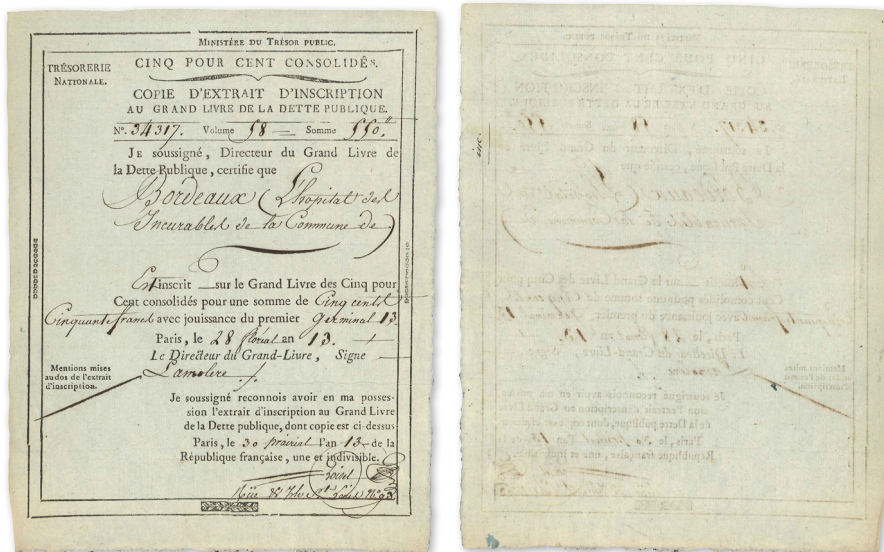 MINISTÈRE DU TRÉSOR PUBLIC.
TRÉSORERIE
NATIONALE.
CINQ POUR CENT CONSOLIDÉS.
COPIE D'EXTRAIT D'INSCRIPTION
AU GRAND LIVRE DE LA DETTE PUBLIQUE.
N°. 34317. Volume 58 Somme 550.
JE soussigné, Directeur du Grand Livre de
la Dette Publique, certifie que
Bordeaux (L'hopital des
Incurables de la Commune de)
Est inscrit sur le Grand Livre des Cinq pour
Cent consolidés pour une somme de Cinq cents
Cinquante francs avec jouissance du premier Germinal 13.
Paris, le 28 floréal an 13.
Le Directeur du Grand-Livre, Signe
Lamolere
Mentions mises
au dos de l'extrait
d'inscription.
Je soussigné reconnois avoir en ma posses-
sion l'extrait d'inscription au Grand Livre
de la Dette publique, dont copie est ci-dessus
Paris, le 30 prairial l'an 13 de la
République française, une et indivisible.